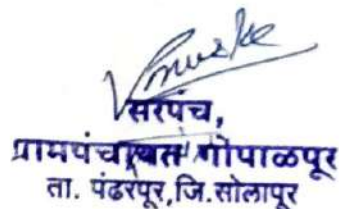 सरपंच,
ग्रामपंचायत गोपाळपूर
ता. पंढरपूर,जि.सोलापूर